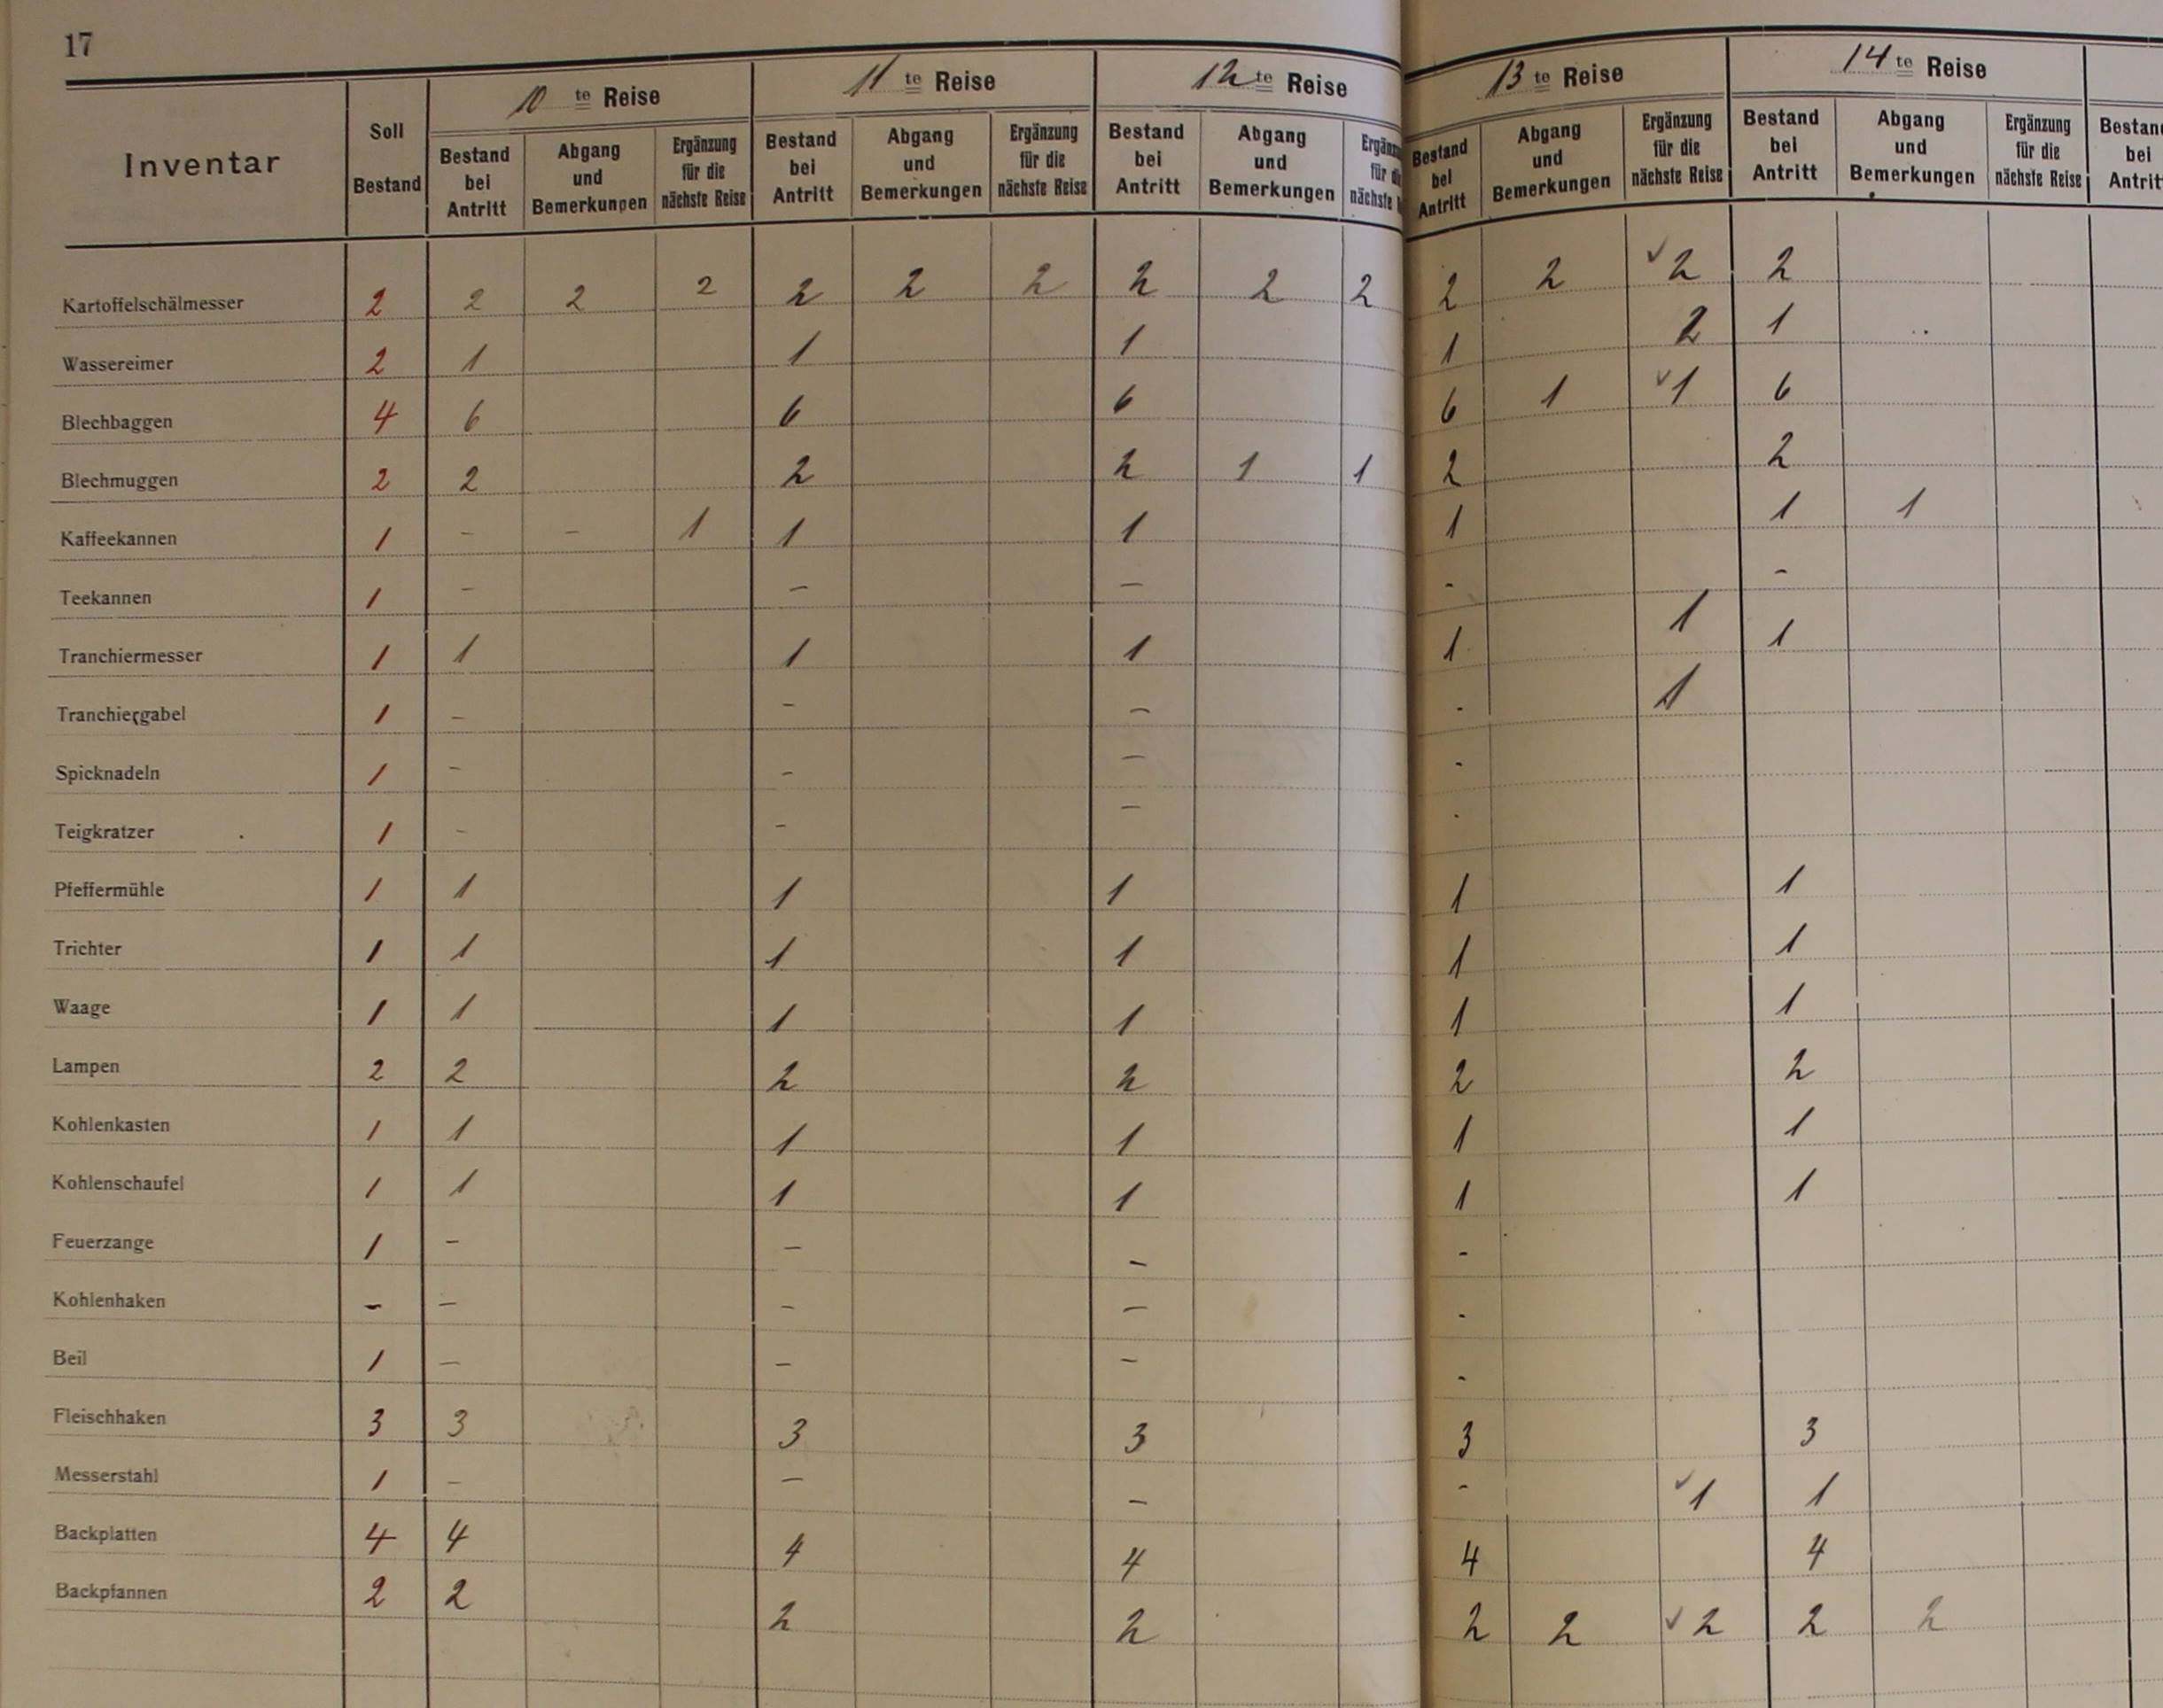 17
Inventar Soll Bestand 10 te Reise 11 te Reise 12 te Reise 13 te Reise 14 te Reise
Bestand bei Antritt Abgang und Bemerkungen Ergänzung für die nächste Reise Bestand bei Antritt Abgang und Bemerkungen Ergänzung für die nächste Reise Bestand bei Antritt Abgang und Bemerkungen für nächste Bestand bei Antritt Abgang und Bemerkungen Ergänzung für die nächste Reise Bestand bei Antritt Abgang und Bemerkungen Ergänzung für die nächste Reise bei
Kartoffelschälmesser 2 2 2 2 2 2 2 2 2 2 2 2 ✓ 2 2
Wassereimer 2 1 1 1 1 2 1
Blechbaggen 4 6 6 6 6 1 ✓ 1 6
Blechmuggen 2 2 2 2 1 1 2 2
Kaffeekannen 1 - - 1 1 1 1 1 1
Teekannen 1 - - - - 1 -
Tranchiermesser 1 1 1 1 1 1
Tranchiergabel 1 - - - - 1
Spicknadeln 1 - - - -
Teigkratzer 1 - - - -
Pfeffermühle 1 1 1 1 1 1
Trichter 1 1 1 1 1 1
Waage 1 1 1 1 1 1
Lampen 2 2 2 2 2 2
Kohlenkasten 1 1 1 1 1 1
Kohlenschaufel 1 1 1 1 1 1
Feuerzange 1 - - - -
Kohlenhaken - - - - -
Beil 1 - - - -
Fleischhaken 3 3 3 3 3 3
Messerstahl 1 - - - - ✓ 1 1
Backplatten 4 4 4 4 4 4
Backpfannen 2 2 2 2 2 2 ✓ 2 2 2